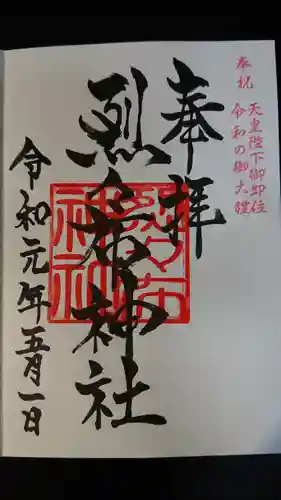 奉祝
天皇陛下御即位
令和の御大禮
奉拝
烈々布神社
令和元年五月一日